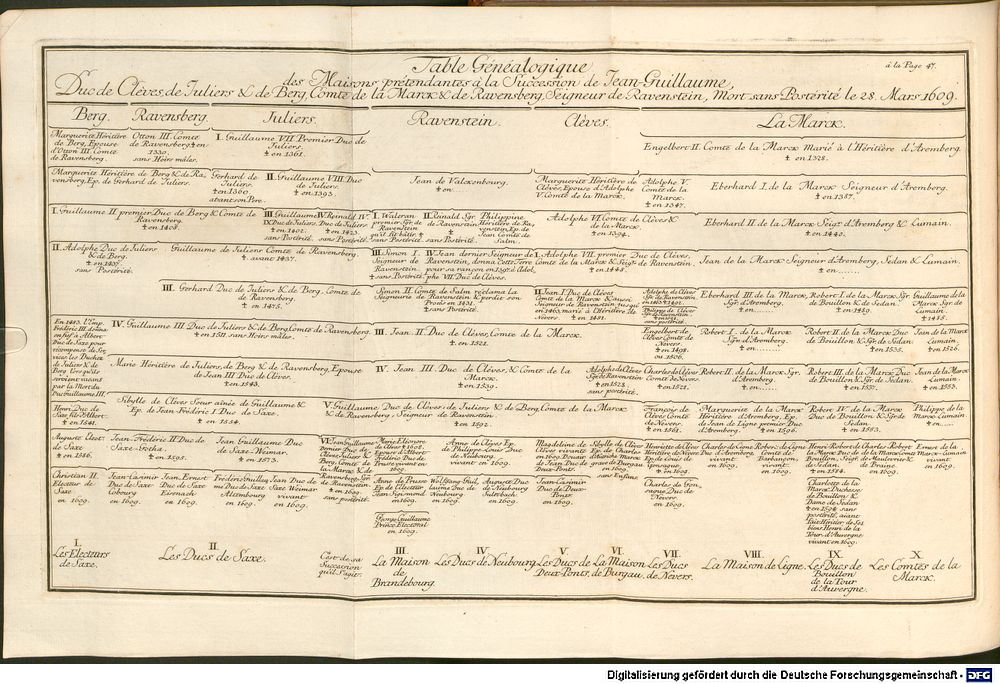 Table Généalogique
à la Page 47.
des Maisons prétendantes à la Succession de Jean-Guillaume,
Duc de Clèves, de Juliers & de Berg, Comte de la Marck & de Ravensberg, Seigneur de Ravenstein, Mort sans Postérité le 28. Mars 1609.
Berg. Ravensberg. Juliers. Ravenstein. Clèves. La Marck.
Marguerite Héritière
de Berg, Epouse
d'Otton III. Comte
de Ravensberg.
Otton III. Comte
de Ravensberg. † en
1330.
sans Hoirs mâles.
I. Guillaume VII Premier Duc de
Juliers.
† en 1361.
Engelbert II. Comte de la Marck marié à l'Héritière d'Aremberg.
† en 1328.
Marguerite Héritière de Berg & de Ra-
vensberg, Ep. de Gerhard de Juliers.
Gerhard de
Juliers.
† en 1360.
avant son Pere.
II. Guillaume VIII. Duc
de Juliers.
† en 1393.
Jean de Valckenbourg.
† en
Marguerite Héritière de
Clèves, Epouse d'Adolphe
V. Comte de la Marck.
Adolphe V.
Comte de la
Marck.
† en 1347.
Eberhard I. de la Marck Seigneur d'Aremberg.
† en 1387.
I. Guillaume II premier Duc de Berg & Comte de
Ravensberg.
† en 1408.
III. Guillaume
IX Duc de Juliers.
† en 1402.
sans Postérité.
IV Reinald IV
Duc de Juliers
† en 1423.
sans Postérité.
I. Waleran
premier Sgr. de
Ravenstein
sans Postérité
II. Reinald Sgr.
de Ravenstein.
†
sans Postérité.
Philippine
Héritière de Ra-
venstein, Ep. de
Jean Comte de
Salm.
Adolphe VI. Comte de Clèves &
de la Marck.
† en 1394.
Eberhard II. de la Marck, Seigr. d'Aremberg & Lumain.
† en 1440.
II. Adolphe Duc de Juliers
& de Berg.
† en 1437.
sans Postérité.
Guillaume de Juliers Comte de Ravensberg.
† avant 1437.
III Simon I.
Seigneur de
Ravenstein.
† sans Postérité.
IV Jean dernier Seigneur de
Ravenstein, donna Cette Terre
pour sa rançon en 1397. à Adol-
phe VII. Duc de Clèves.
I. Adolphe VII. premier Duc de Clèves,
Comte de la Marck & Seigr. de Ravenstein.
† en 1448.
Jean de la Marck Seigneur d'Aremberg, Sedan & Lumain.
† en ........
III. Gerhard Duc de Juliers & de Berg, Comte de
de Ravensberg.
† en 1475.
Simon II. Comte de Salm réclama la
Seigneurie de Ravenstein & perdit son
Procès en 1431.
† sans Postérité.
II Jean I. Duc de Clèves
Comte de la Marck & aussi
Seigneur de Ravenstein jusqu'
en 1463, marié à l'Héritière de
Nevers. † en 1481.
Adolphe de Clèves
Eberhard III. de la Marck,
Sgr. d'Aremberg.
† en ........
Robert I. de la Marck Sgr.
de Bouillon & de Sedan.
† en 1489.
Guillaume de la
Marck Sgr. de
Lumain.
† 1485.
En 1483. l'Emp.
Frédéric III. donna
en fief à Albert
Duc de Saxe pour
récompense de Ser-
vices les Duchez
de Juliers & de
Berg, lors qu'ils
seroient vacans
par la Mort du
Duc Guillaume III.
IV. Guillaume III. Duc de Juliers & de Berg, Comte de Ravensberg.
† en 1511. sans Hoirs mâles.
III. Jean II. Duc de Clèves, Comte de la Marck.
† en 1521.
Engelbert de
Clèves Comte de
Nevers.
† en 1498.
ou 1506.
Robert I. de la Marck
Sgr. d'Aremberg.
† en ........
Robert II. de la Marck Duc
de Bouillon & Sgr. de Sedan.
† en 1535.
Jean de la Marck
Lumain.
† en 1526.
Marie Héritière de Juliers, de Berg & de Ravensberg, Epouse
de Jean III Duc de Clèves.
† en 1543.
IV. Jean III. Duc de Clèves, & Comte de la
Marck.
† en 1539.
Adolphe de Clèves
Sgr. de Ravenstein
† en 1528.
sans postérité.
Charles de Clèves
Comte de Nevers.
† en 1521.
Robert II. de la Marck Sgr.
d'Aremberg.
† en ........
Robert III. de la Marck Duc
de Bouillon & Sgr. de Sedan.
† en 1537.
Jean de la Marck
Lumain.
† en 1553.
Henri Duc de
Saxe fils d'Albert.
† en 1541.
Sibylle de Clèves Soeur ainée de Guillaume &
Ep. de Jean Frédéric I. Duc de Saxe.
† en 1554.
V. Guillaume Duc de Clèves, de Juliers & de Berg, Comte de la Marck
& de Ravensberg, Seigneur de Ravenstein.
† en 1592.
François de
Clèves Comte
de Nevers.
† en 1561.
Marguerite de la Marck
Héritière d'Aremberg, Ep.
de Jean de Ligne premier Duc
d'Aremberg. † en 1596.
Robert IV de la Marck
Duc de Bouillon & Sgr. de
Sedan.
† en 1553.
Philippe de la
Marck Lumain
† en ....
Auguste Elect.
de Saxe
† en 1586.
Jean-Frédéric II Duc de
Saxe-Gotha.
† en 1595.
Jean Guillaume Duc
de Saxe-Weimar.
† en 1573.
VI. Jean Guillaume
Dernier Duc de
Clèves, Juliers &
Berg, Comte de
la Marck & de
Ravensberg, Sgr.
de Ravenstein.
† en 1609.
sans postérité.
Marie Eléonore
de Clèves † 1608.
Epouse d'Albert
Frédéric Duc de
Prusse vivant en
1609.
Anne de Clèves Ep.
de Philippe-Louis Duc
de Neubourg.
vivant en 1609.
Magdeleine de
Clèves vivante
en 1609. Douair.
de Jean Duc de
Deux-Ponts.
Sibylle de Clèves
Ep. de Charles
d'Autriche Marck
grave de Burgau.
sans Enfans.
Henriette de Clèves
Héritière de Nevers
Ep. de Louis de
Gonzague.
† en 1601.
Charles de Ligne
Duc d'Aremberg.
vivant
en 1609.
Robert de Ligne
Comte de
Barbançon,
vivant.
Henri-Robert de
la Marck Duc de
Bouillon, Seigr.
de Sedan.
† en 1574.
Charles Robert
de la Marck Comte
de Maulevrier &
de Braine.
en 1609.
Ernest de la
Marck-Lumain
vivant
en 1609.
Christian II.
Electeur de
Saxe
en 1609.
Jean Casimir
Duc de Saxe
Cobourg
en 1609.
Jean Ernest
Duc de Saxe
Eisenach
en 1609.
Frédéric Guillau-
me Duc de Saxe
Altembourg
en 1609.
Jean Duc de
Saxe Weimar
vivant
en 1609.
Anne de Prusse
Ep. de l'Electeur
Jean Sigismond
en 1609.
Wolfgang Guil-
laume Duc de
Neubourg
en 1609.
Auguste Duc
de Neubourg
Sultzbach
en 1609.
Jean Casimir
Duc de Deux-
Ponts.
en 1609.
Charles de Gon-
zague Duc de
Nevers.
en 1609.
Charlotte de la
Marck Duchesse
de Bouillon &
Dame de Sedan
† en 1594 sans
postérité, aiant
fait Héritier de Ses
biens Henri de la
Tour d'Auvergne
vivant en 1609.
George Guillaume
Prince Electoral
en 1609.
I.
Les Electeurs
de Saxe.
II.
Les Ducs de Saxe.
C'est de sa
Succession
qu'il s'agit.
III.
La Maison
de
Brandebourg.
IV.
Les Ducs de Neubourg.
V.
Les Ducs de
Deux-Ponts.
VI.
La Maison
de Burgau.
VII.
Les Ducs
de Nevers.
VIII.
La Maison de Ligne.
IX.
Les Ducs de
Bouillon
de la Tour
d'Auvergne.
X.
Les Comtes de la
Marck.
Digitalisierung gefördert durch die Deutsche Forschungsgemeinschaft - DFG